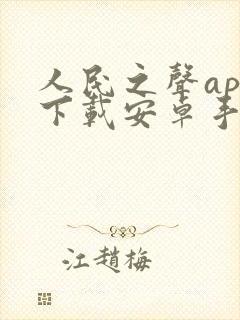 人民之聲ap
下載安卓手
江趙梅